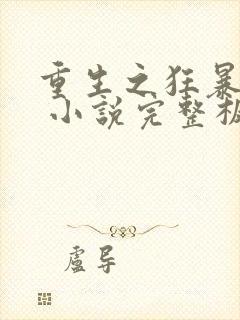 重生之狂暴
小說完整板
盧导